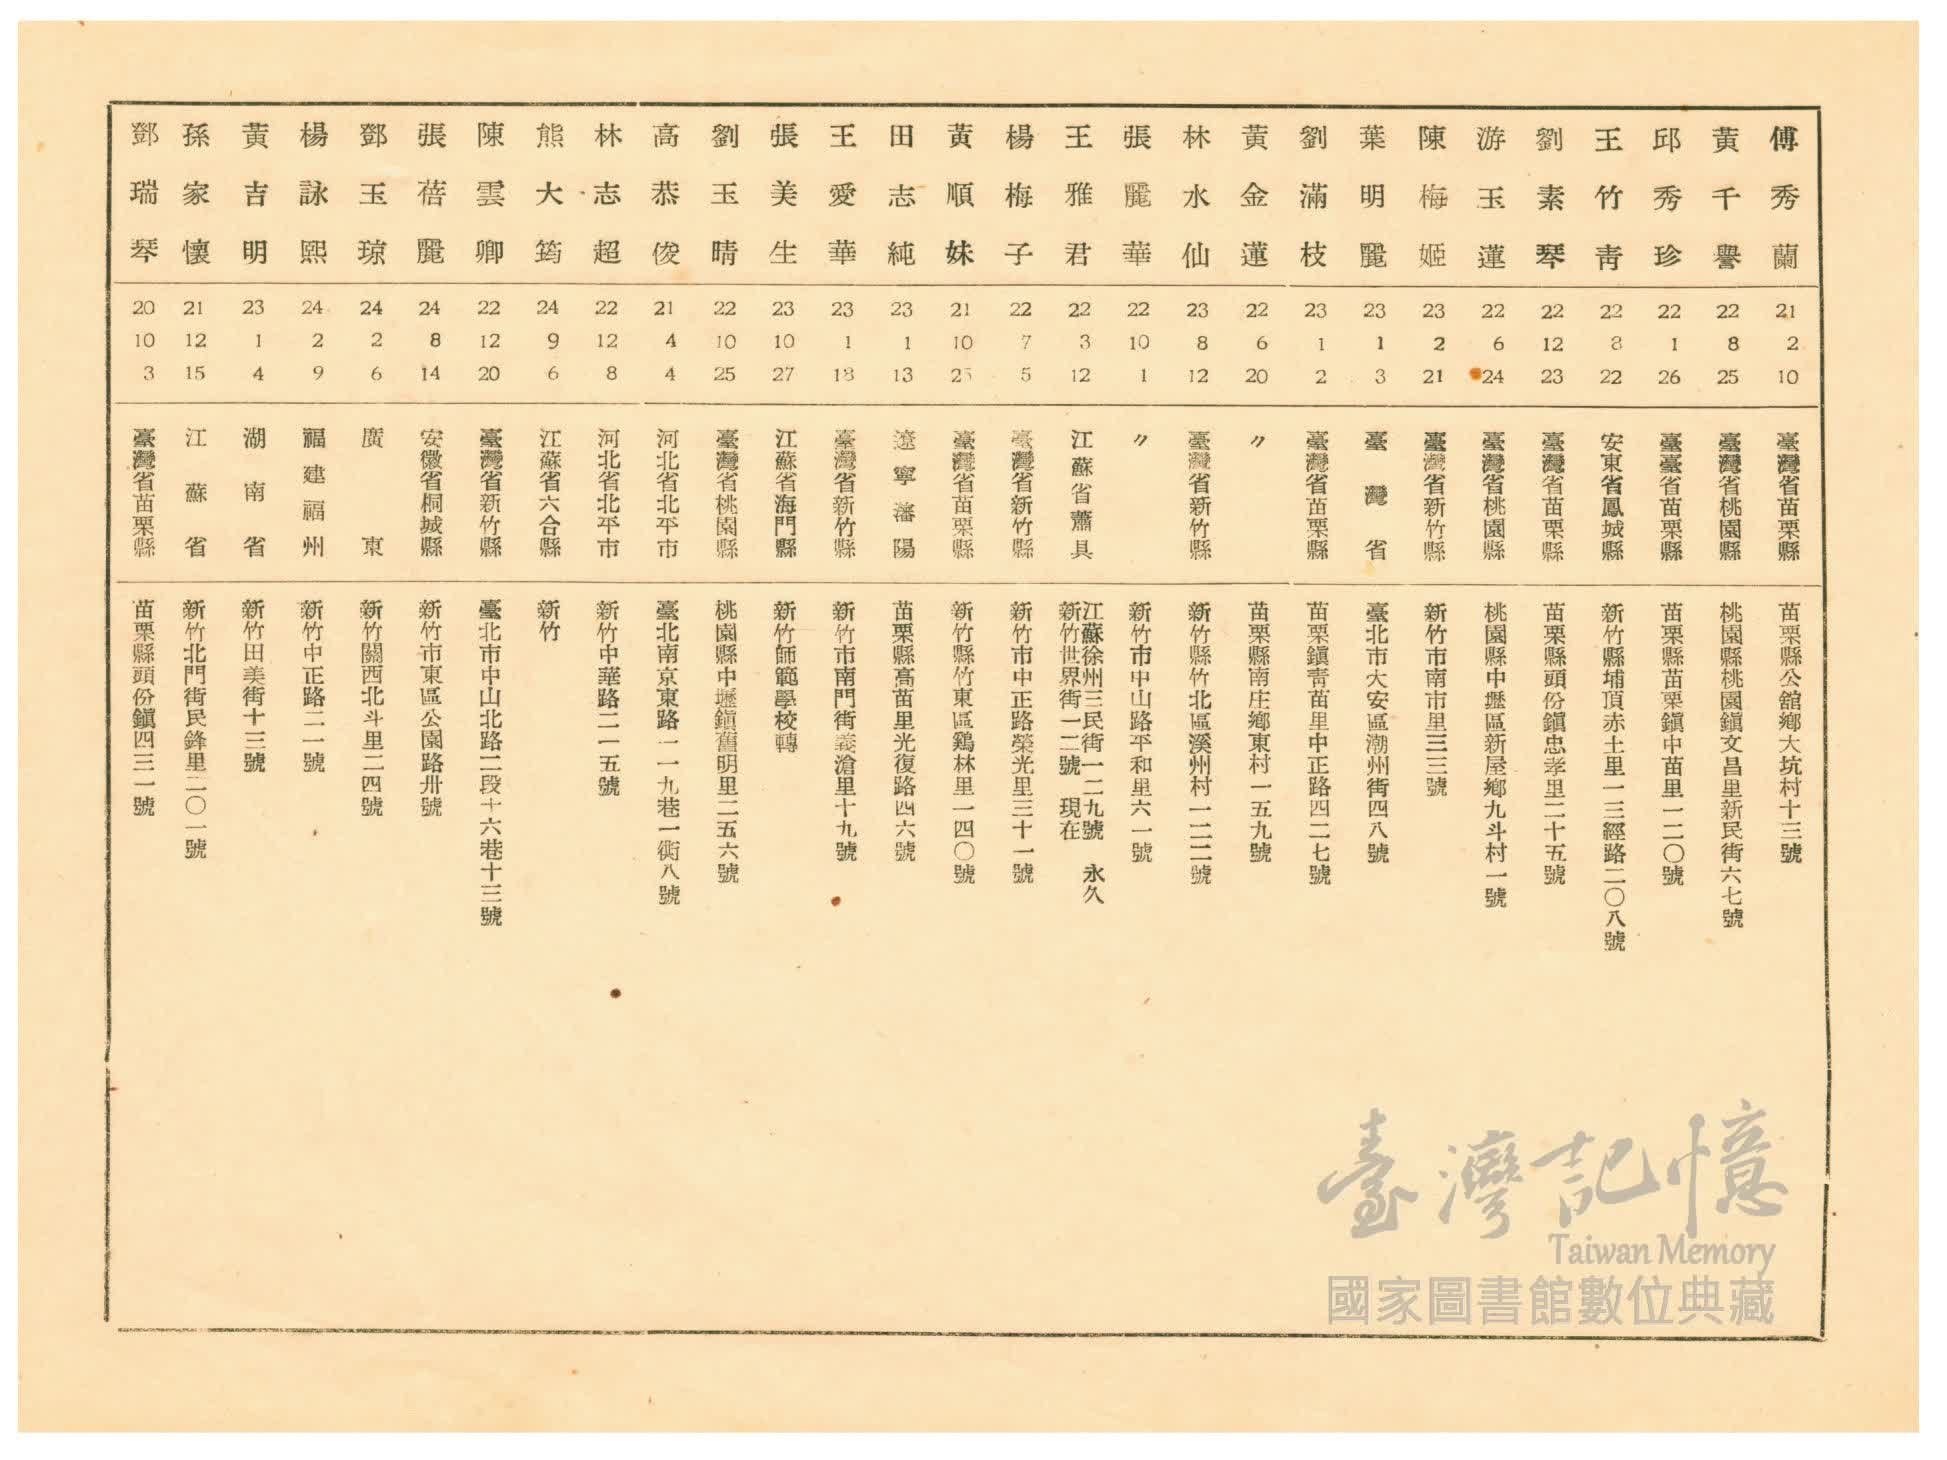 傅秀蘭 21 2 10 臺灣省苗栗縣 苗栗縣公舘鄉大坑村十三號
黃千譽 22 8 25 臺灣省桃園縣 桃園縣桃園鎭文昌里新民街六七號
邱秀珍 22 1 26 臺臺省苗栗縣 苗栗縣苗栗鎭中苗里一二〇號
王竹靑 22 8 22 安東省鳳城縣 新竹縣埔頂赤土里一三經路二〇八號
劉素琴 22 12 23 臺灣省苗栗縣 苗栗縣頭份鎭忠孝里二十五號
游玉蓮 22 6 24 臺灣省桃園縣 桃園縣中壢區新屋鄉九斗村一號
陳梅姬 23 2 21 臺灣省新竹縣 新竹市南市里三三號
葉明麗 23 1 3 臺灣省 臺北市大安區潮州街四八號
劉滿枝 23 1 2 臺灣省苗栗縣 苗栗鎭靑苗里中正路四二七號
黃金蓮 22 6 20 〃 苗栗縣南庄鄉東村一五九號
林水仙 23 8 12 臺灣省新竹縣 新竹縣竹北區溪州村一二二號
張麗華 22 10 1 〃 新竹市中山路平和里六一號
王雅君 22 3 12 江蘇省蕭具 江蘇徐州三民街一二九號 永久
新竹世界街一二號 現在
楊梅子 22 7 5 臺灣省新竹縣 新竹市中正路榮光里三十一號
黃順妹 21 10 25 臺灣省苗栗縣 新竹縣竹東區鷄林里一四〇號
田志純 23 1 13 遼寧瀋陽 苗栗縣高苗里光復路四六號
王愛華 23 1 18 臺灣省新竹縣 新竹市南門街義滄里十九號
張美生 23 10 27 江蘇省海門縣 新竹師範學校轉
劉玉晴 22 10 25 臺灣省桃園縣 桃園縣中壢鎭舊明里二五六號
高恭俊 21 4 4 河北省北平市 臺北南京東路一一九巷一衖八號
林志超 22 12 8 河北省北平市 新竹中華路二一五號
熊大筠 24 9 6 江蘇省六合縣 新竹
陳雲卿 22 12 20 臺灣省新竹縣 臺北市中山北路二段十六巷十三號
張蓓麗 24 8 14 安徽省桐城縣 新竹市東區公園路卅號
鄧玉琼 24 2 6 廣東 新竹關西北斗里二四號
楊詠熙 24 2 9 福建福州 新竹中正路二一號
黃吉明 23 1 4 湖南省 新竹田美街十三號
孫家懷 21 12 15 江蘇省 新竹北門街民鋒里二〇一號
鄧瑞琴 20 10 3 臺灣省苗栗縣 苗栗縣頭份鎭四三一號
臺灣記憶
Taiwan Memory
國家圖書館數位典藏